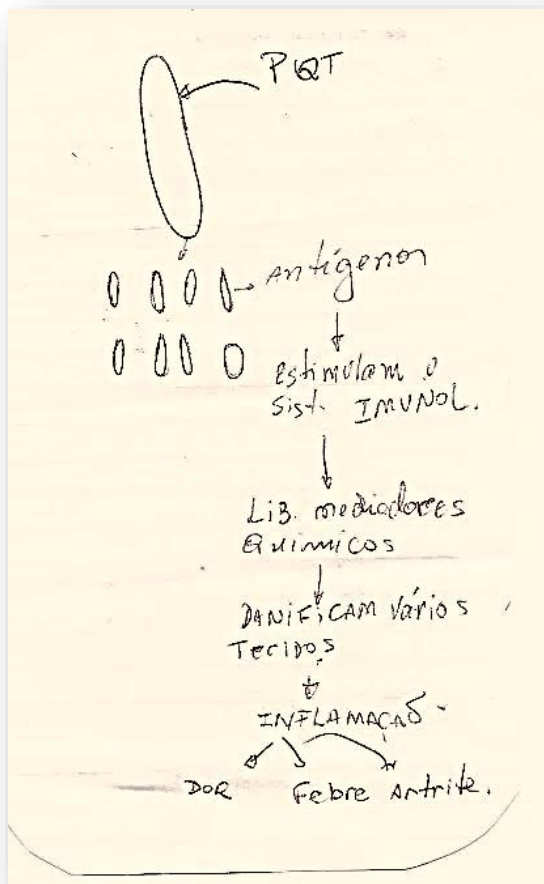 PQT
Antígenos
Estimulam o
Sist. IMUNOL.
Lib. mediadores
Químicos
DANIFICAM vários
Tecidos
INFLAMAÇÃO
DOR Febre Artrite.